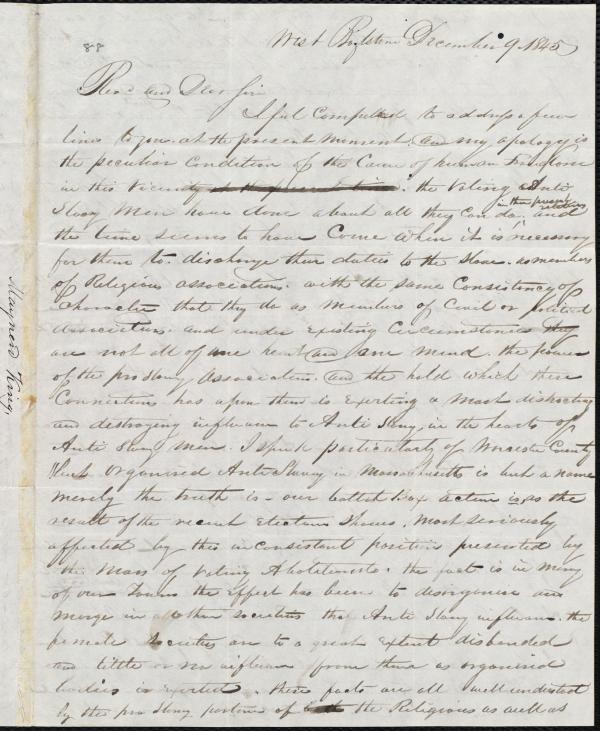 88
West Boylston December 9. 1845
Revd and Dear Sir
I feel Compelled to address a few
lines to you. at the present moment, and my apology is
the peculiar Condition of the Cause of human Freedom
in this vicinity. the Voting Anti
in their present relations
Slavy Men have done about all they Can do. and
the time seems to have Come when it is necessary
for them to. discharge their duties to the Slave. as members
of Religious associations. with the same Consistency of
Character that they do as members of Civil or political
Associations. and under existing Circumstances they
are not all of one heart and one mind. the power
of the pro Slavy Association. and the hold which there
Connection has upon them is exerting a most distracting
and destroying influence to Anti Slavy, in the hearts of
Anti Slavy men. I speak particularly of Worcester County
organised Anti Slavy in Massachusetts is but a name
merely the truth is - our ballot Box action is as the
result of the recent Elections Shows. most seriously
affected by this inconsistant position presented by
the Mass of Voting Abolitionists. the fact is in many
of our Towns the effect has been to disorganise and
merge in other societies that Anti Slavy influence. the
female Societies are to a great extent disbanded
and little or no influence from them as organised
bodies is exerted. these facts are all well understood
by the pro Slavy portions of the Religious as well as
Maynard King.